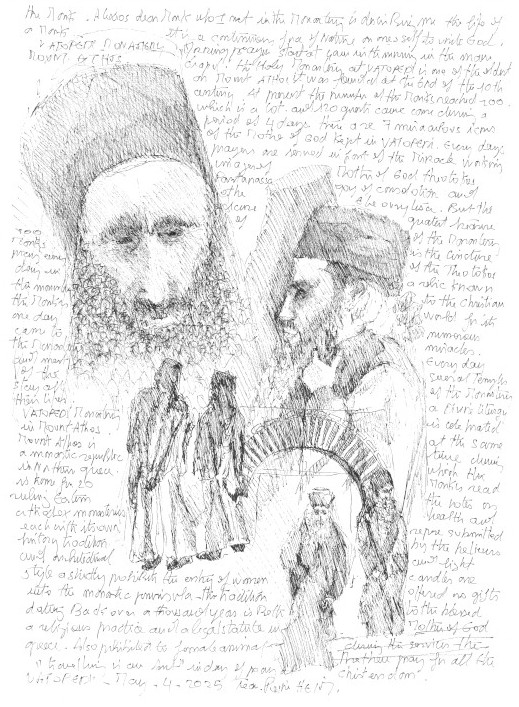 The Monk. Alexios dear Monk who I met in the Monastery is describing me the life of
a Monk. It is a continuous of nature on oneself to unite God.
VATOPEDI MONASTERY
MOUNT ATHOS
Morning prayer start at 4am in the morning in the main
chapel. The Holy Monastery at VATOPEDI is one of the oldest
on Mount ATHOS. It was founded at the End of the 10th
century. At present the number of the Monks reached 100.
which is a lot and 120 guests came during a
period of 4 days. There are 7 miraculous icons
of the Mother of God Kept in VATOPEDI. Every day
prayers are in front of the Miracle working
image of Mother of God theotokos
Pantanassa joy of consolation and
the But the
of greatest treasure
of the Monastery
is the cincture
of the Theotokos
a relic known
to the christian
world for its
numerous
miracles.
Every day
several temples
of the Monastery
a Divine liturgy
is celebrated
at the same
time during
which the
Monks read
the notes on
health and
repose submitted
by the believers
and light
candles are
offered as gifts
to the blessed
Mother of God
during the services the
brother pray for all the
christendom.
100
Monks
pray every
day in
the monastery
the Monks
one day
came to
the Monastery
and many
of them
stay all
their lives.
VATOPEDI Monastery
in Mount Athos.
Mount Athos is
a monastic republic
in Northern greece.
is home for 20
ruling Eastern
orthodox monasteries
each with its own
history tradition
and architectural
style a strictly prohibits the entry of women
into the monastic peninsula. The tradition
dating Back over a thousand years is Both
a religious practice and a legal statute in
greece. Also prohibited to female animal
VATOPEDI - May - 4 - 2025 Pierre HENRY.